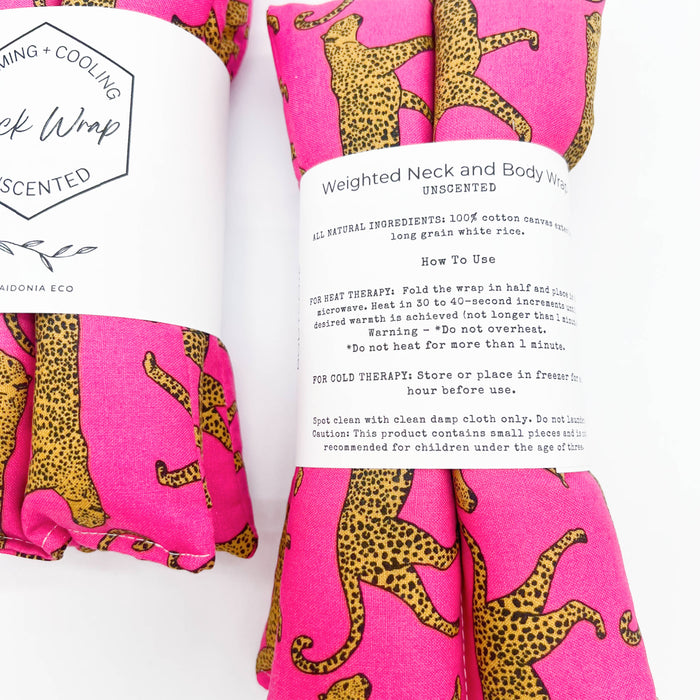 MING + COOLING
ck Wrap
SCENTED
AIDONIA ECO
Weighted Neck and Body Wrap
UNSCENTED
ALL NATURAL INGREDIENTS: 100% cotton canvas exter
long grain white rice.
How To Use
FOR HEAT THERAPY: Fold the wrap in half and place in
microwave. Heat in 30 to 40-second increments unti
desired warmth is achieved (not longer than 1 minu
Warning - *Do not overheat.
*Do not heat for more than 1 minute.
FOR COLD THERAPY: Store or place in freezer for
hour before use.
Spot clean with clean damp cloth only. Do not laun
Caution: This product contains small pieces and is
recommended for children under the age of three.